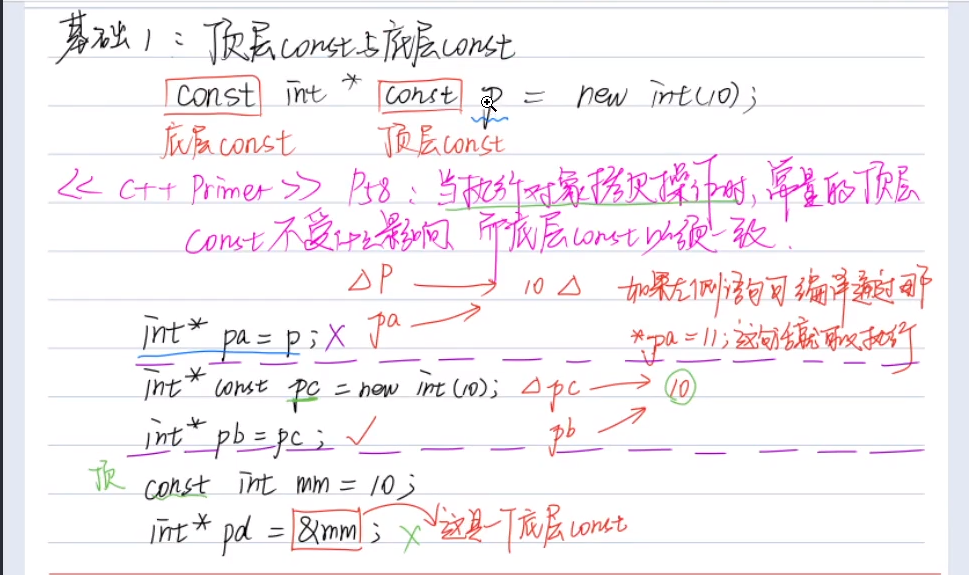 基础1：顶层const与底层const
const int * const p = new int(10);
底层const 顶层const
<< C++ Primer >> P58：当执行对象拷贝操作时，常量的顶层
const不受什么影响 而底层const必须一致.
△ P 10 △ 如果左侧语句可编译通过 那
int* pa = p; X pa *pa = 11; 这句话就可以执行
int* const pc = new int(10); △ pc 10
int* pb = pc; ✓ pb
顶 const int mm = 10;
int* pd = &mm; X 这是一个底层const